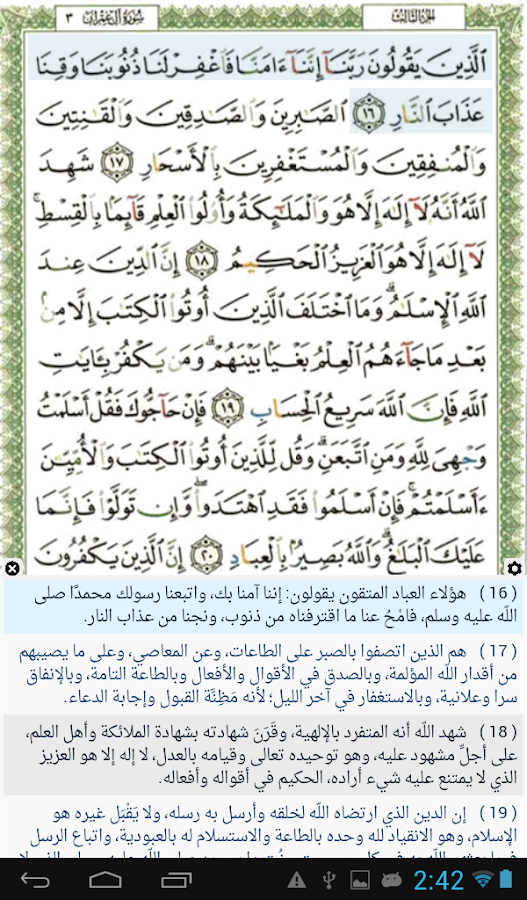 سُورَةُ آلِ عِمْرَانَ ٣
الجُزْءُ الثَّالِثُ
الَّذِينَ يَقُولُونَ رَبَّنَآ إِنَّنَآ ءَامَنَّا فَاغْفِرْ لَنَا ذُنُوبَنَا وَقِنَا
عَذَابَ النَّارِ ١٦ الصَّابِرِينَ وَالصَّادِقِينَ وَالْقَانِتِينَ
وَالْمُنفِقِينَ وَالْمُسْتَغْفِرِينَ بِالْأَسْحَارِ ١٧ شَهِدَ
اللَّهُ أَنَّهُ لَآ إِلَٰهَ إِلَّا هُوَ وَالْمَلَٰٓئِكَةُ وَأُولُوا الْعِلْمِ قَآئِمًا بِالْقِسْطِ ۚ
لَآ إِلَٰهَ إِلَّا هُوَ الْعَزِيزُ الْحَكِيمُ ١٨ إِنَّ الدِّينَ عِندَ
اللَّهِ الْإِسْلَٰمُ ۗ وَمَا اخْتَلَفَ الَّذِينَ أُوتُوا الْكِتَٰبَ إِلَّا مِنۢ
بَعْدِ مَا جَآءَهُمُ الْعِلْمُ بَغْيًۢا بَيْنَهُمْ ۗ وَمَن يَكْفُرْ بِـَٔايَٰتِ
اللَّهِ فَإِنَّ اللَّهَ سَرِيعُ الْحِسَابِ ١٩ فَإِنْ حَآجُّوكَ فَقُلْ أَسْلَمْتُ
وَجْهِيَ لِلَّهِ وَمَنِ اتَّبَعَنِ ۗ وَقُل لِّلَّذِينَ أُوتُوا الْكِتَٰبَ وَالْأُمِّيِّـۧنَ
ءَأَسْلَمْتُمْ ۚ فَإِنْ أَسْلَمُوا فَقَدِ اهْتَدَوا ۖ وَّإِن تَوَلَّوْا فَإِنَّمَا
عَلَيْكَ الْبَلَٰغُ ۗ وَاللَّهُ بَصِيرٌۢ بِالْعِبَادِ ٢٠ إِنَّ الَّذِينَ يَكْفُرُونَ
( 16 ) هؤلاء العباد المتقون يقولون: إننا آمنا بك، واتبعنا رسولك محمدًا صلى
الله عليه وسلم، فامْحُ عنا ما اقترفناه من ذنوب، ونجنا من عذاب النار.
( 17 ) هم الذين اتصفوا بالصبر على الطاعات، وعن المعاصي، وعلى ما يصيبهم
من أقدار الله المؤلمة، وبالصدق في الأقوال والأفعال وبالطاعة التامة، وبالإنفاق
سرا وعلانية، وبالاستغفار في آخر الليل؛ لأنه مَظِنَّة القبول وإجابة الدعاء.
( 18 ) شهد الله أنه المتفرد بالإلهية، وقَرَنَ شهادته بشهادة الملائكة وأهل العلم،
على أجلِّ مشهود عليه، وهو توحيده تعالى وقيامه بالعدل، لا إله إلا هو العزيز
الذي لا يمتنع عليه شيء أراده، الحكيم في أقواله وأفعاله.
( 19 ) إن الدين الذي ارتضاه الله لخلقه وأرسل به رسله، ولا يَقْبَل غيره هو
الإسلام، وهو الانقياد لله وحده بالطاعة والاستسلام له بالعبودية، واتباع الرسل
2:42